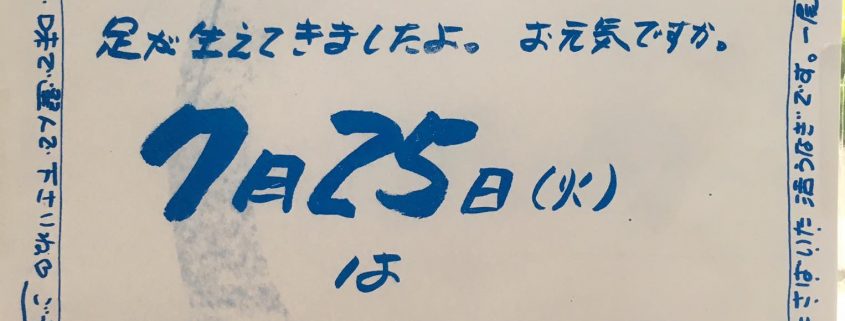 足が生えてきましたよ。 お元気ですか。
7月25日(火)
は
さばいた活うなぎです。一尾
味で選んで下さいね。